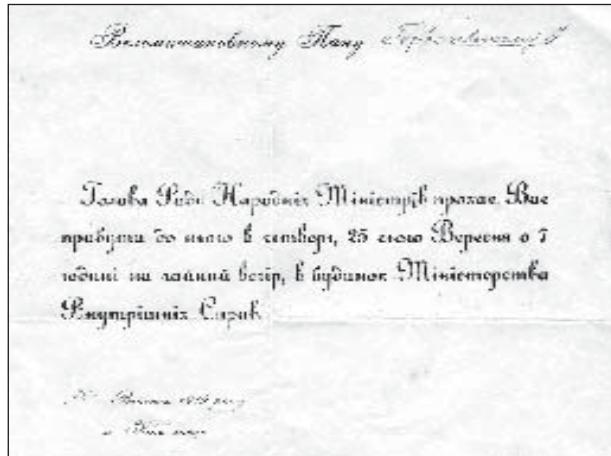 Вельмишановному Пану
Голова Ради Народніх Міністрів прохає Вас
прибути до нього в четвер, 25 сього Вересня о 7
годині на чайний вечір, в будинок Міністерства
Внутрішніх Справ
Вересня року